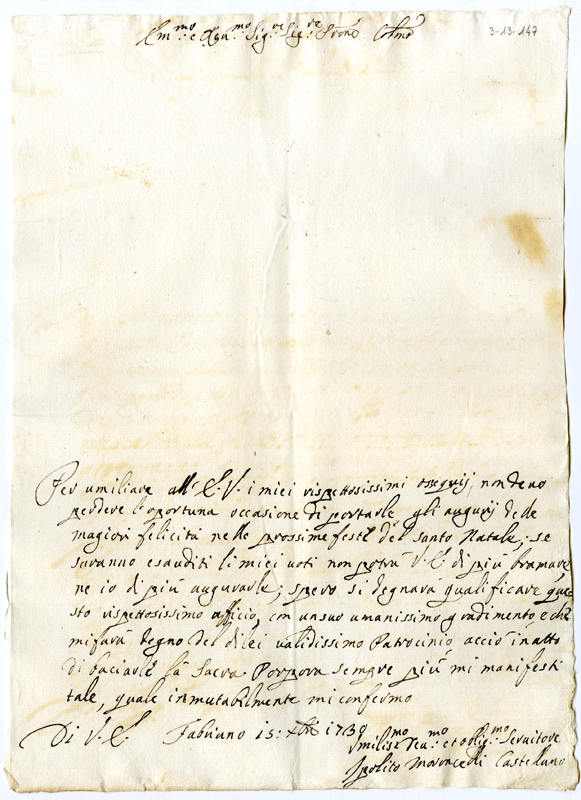 3-13-147
Em.mo e Rev.mo Sig.re Sig.re Prone Colmo
Per umiliare all' E. V. i miei rispettosissimi ossequij, non devo
perdere l'oportuna occasione di portarle gli augurij delle
magiori felicità nelle prossime feste del Santo Natale; se
saranno esauditi li miei voti non potrà V. E. di più bramare,
ne io di più augurarle; spero si degnarà qualificare que
sto rispettosissimo officio, con un suo umanissimo gradimento e che
mi farà degno del di lei validissimo Patrocinio, acciò in atto
di baciarle la Sacra Porpora sempre più mi manifesti
tale, quale inmutabilmente mi confermo
Di V. E. Fabriano 15: Xbre 1730
Umilis.mo Dev.mo et oblig.mo Servitore
Ipolito Moroncelli Castellano